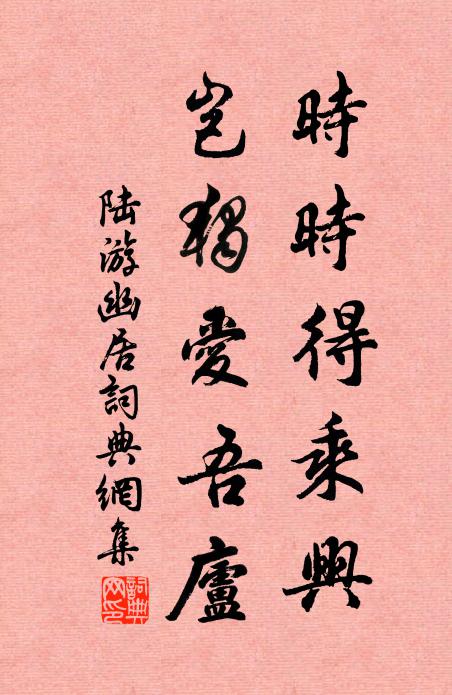 時時得乘興
豈獨愛吾廬
陆游幽居詞典網集
詞典
网印